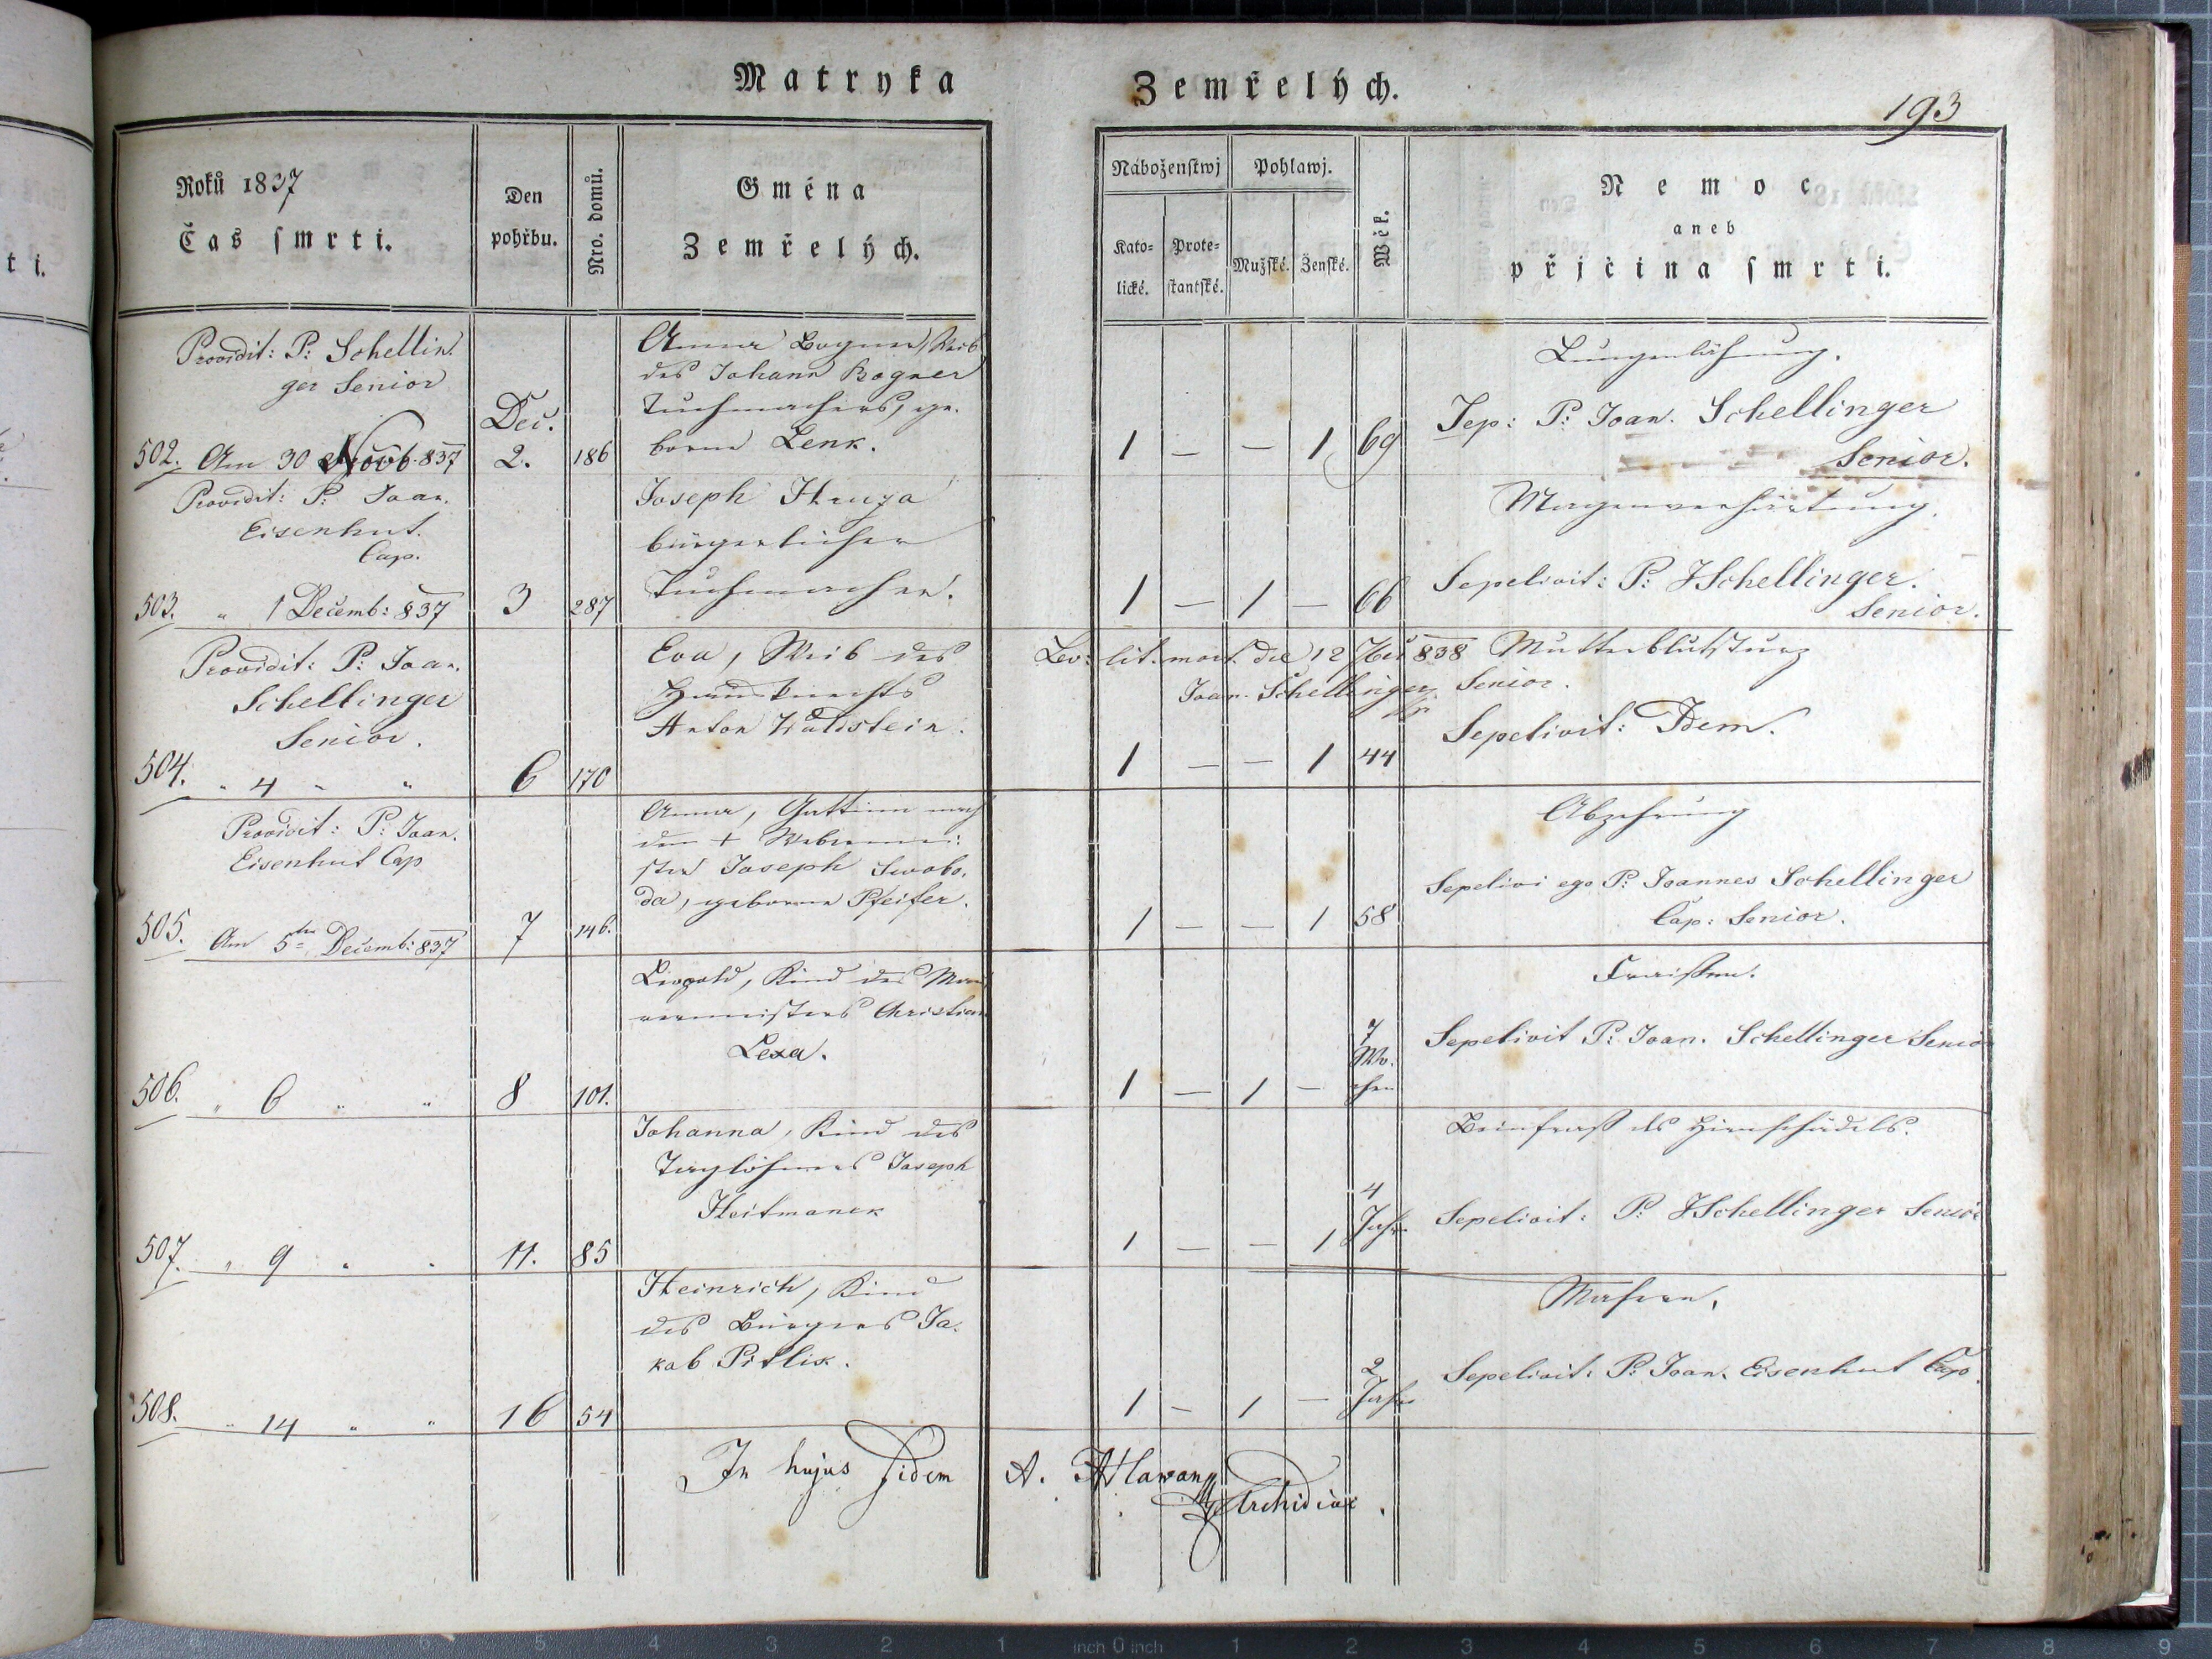 Matryka Zemřelých.
193
Roků 1837
Čas smrti.
Den pohřbu.
Nro. domů.
Gména Zemřelých.
Náboženstwj
Kato-lické.
Prote-stantské.
Pohlawj.
Mužské.
Ženské.
Wěk.
Nemoc
aneb
přjčina smrti.
Providit: P: Schellin.
ger Senior
502. Am 30 Novb. 837
Dec.
2.
186
Anna Bogner, Weib
des Johann Bogner
Tuchmachers, ge.
borne Lenk.
1 — — 1 69
Lungenlähmung.
Sep: P: Joan. Schellinger
Senior.
Providit: P: Joan.
Eisenhut.
Cap.
503. " 1 Decemb: 837
3
287
Joseph Hruza
bürgerlicher
Tuchmacher.
1 — 1 — 66
Magenverhärtung.
Sepelivit: P: JSchellinger.
Senior.
Providit: P: Joan.
Schellinger
Senior.
504. " 4 " "
6
170
Eva, Weib des
Hausknechts
Anton Waldstein.
Lev: lit. mort. die 12 7ber 838
Joan. Schellinger Senior.
1 — — 1 44
Mutterblutsturz
Sepelivit: Idem.
Providit: P: Joan.
Eisenhut Cap
505. Am 5ten Decemb: 837
7
146.
Anna, Gattinn nach
dem + Webermei:
ster Joseph Swobo.
da, geborne Pfeifer.
1 — — 1 58
Abzehrung
Sepelivi ego P: Joannes Schellinger
Cap: Senior.
506. " 6 " "
8
101.
Leopold, Kind des Mau
rermeisters Christian
Lexa.
1 — 1 — 7 Wo.
chen
Fraisen.
Sepelivit P: Joan. Schellinger Senior
507. " 9 " "
11.
85
Johanna, Kind des
Taglöhners Joseph
Heitmanek
1 — — 1 4
Jahre
Beinfraß des Hirnschädels.
Sepelivit: P: JSchellinger Senior
508. " 14 " "
16
54
Heinrich, Kind
des Bürgers Ja.
kob Pitlik.
1 — 1 — 2
Jahre
Masern.
Sepelivit: P: Joan. Eisenhut Cap.
In hujus fidem A. Hlawan
Archidiac.
inch 0 inch